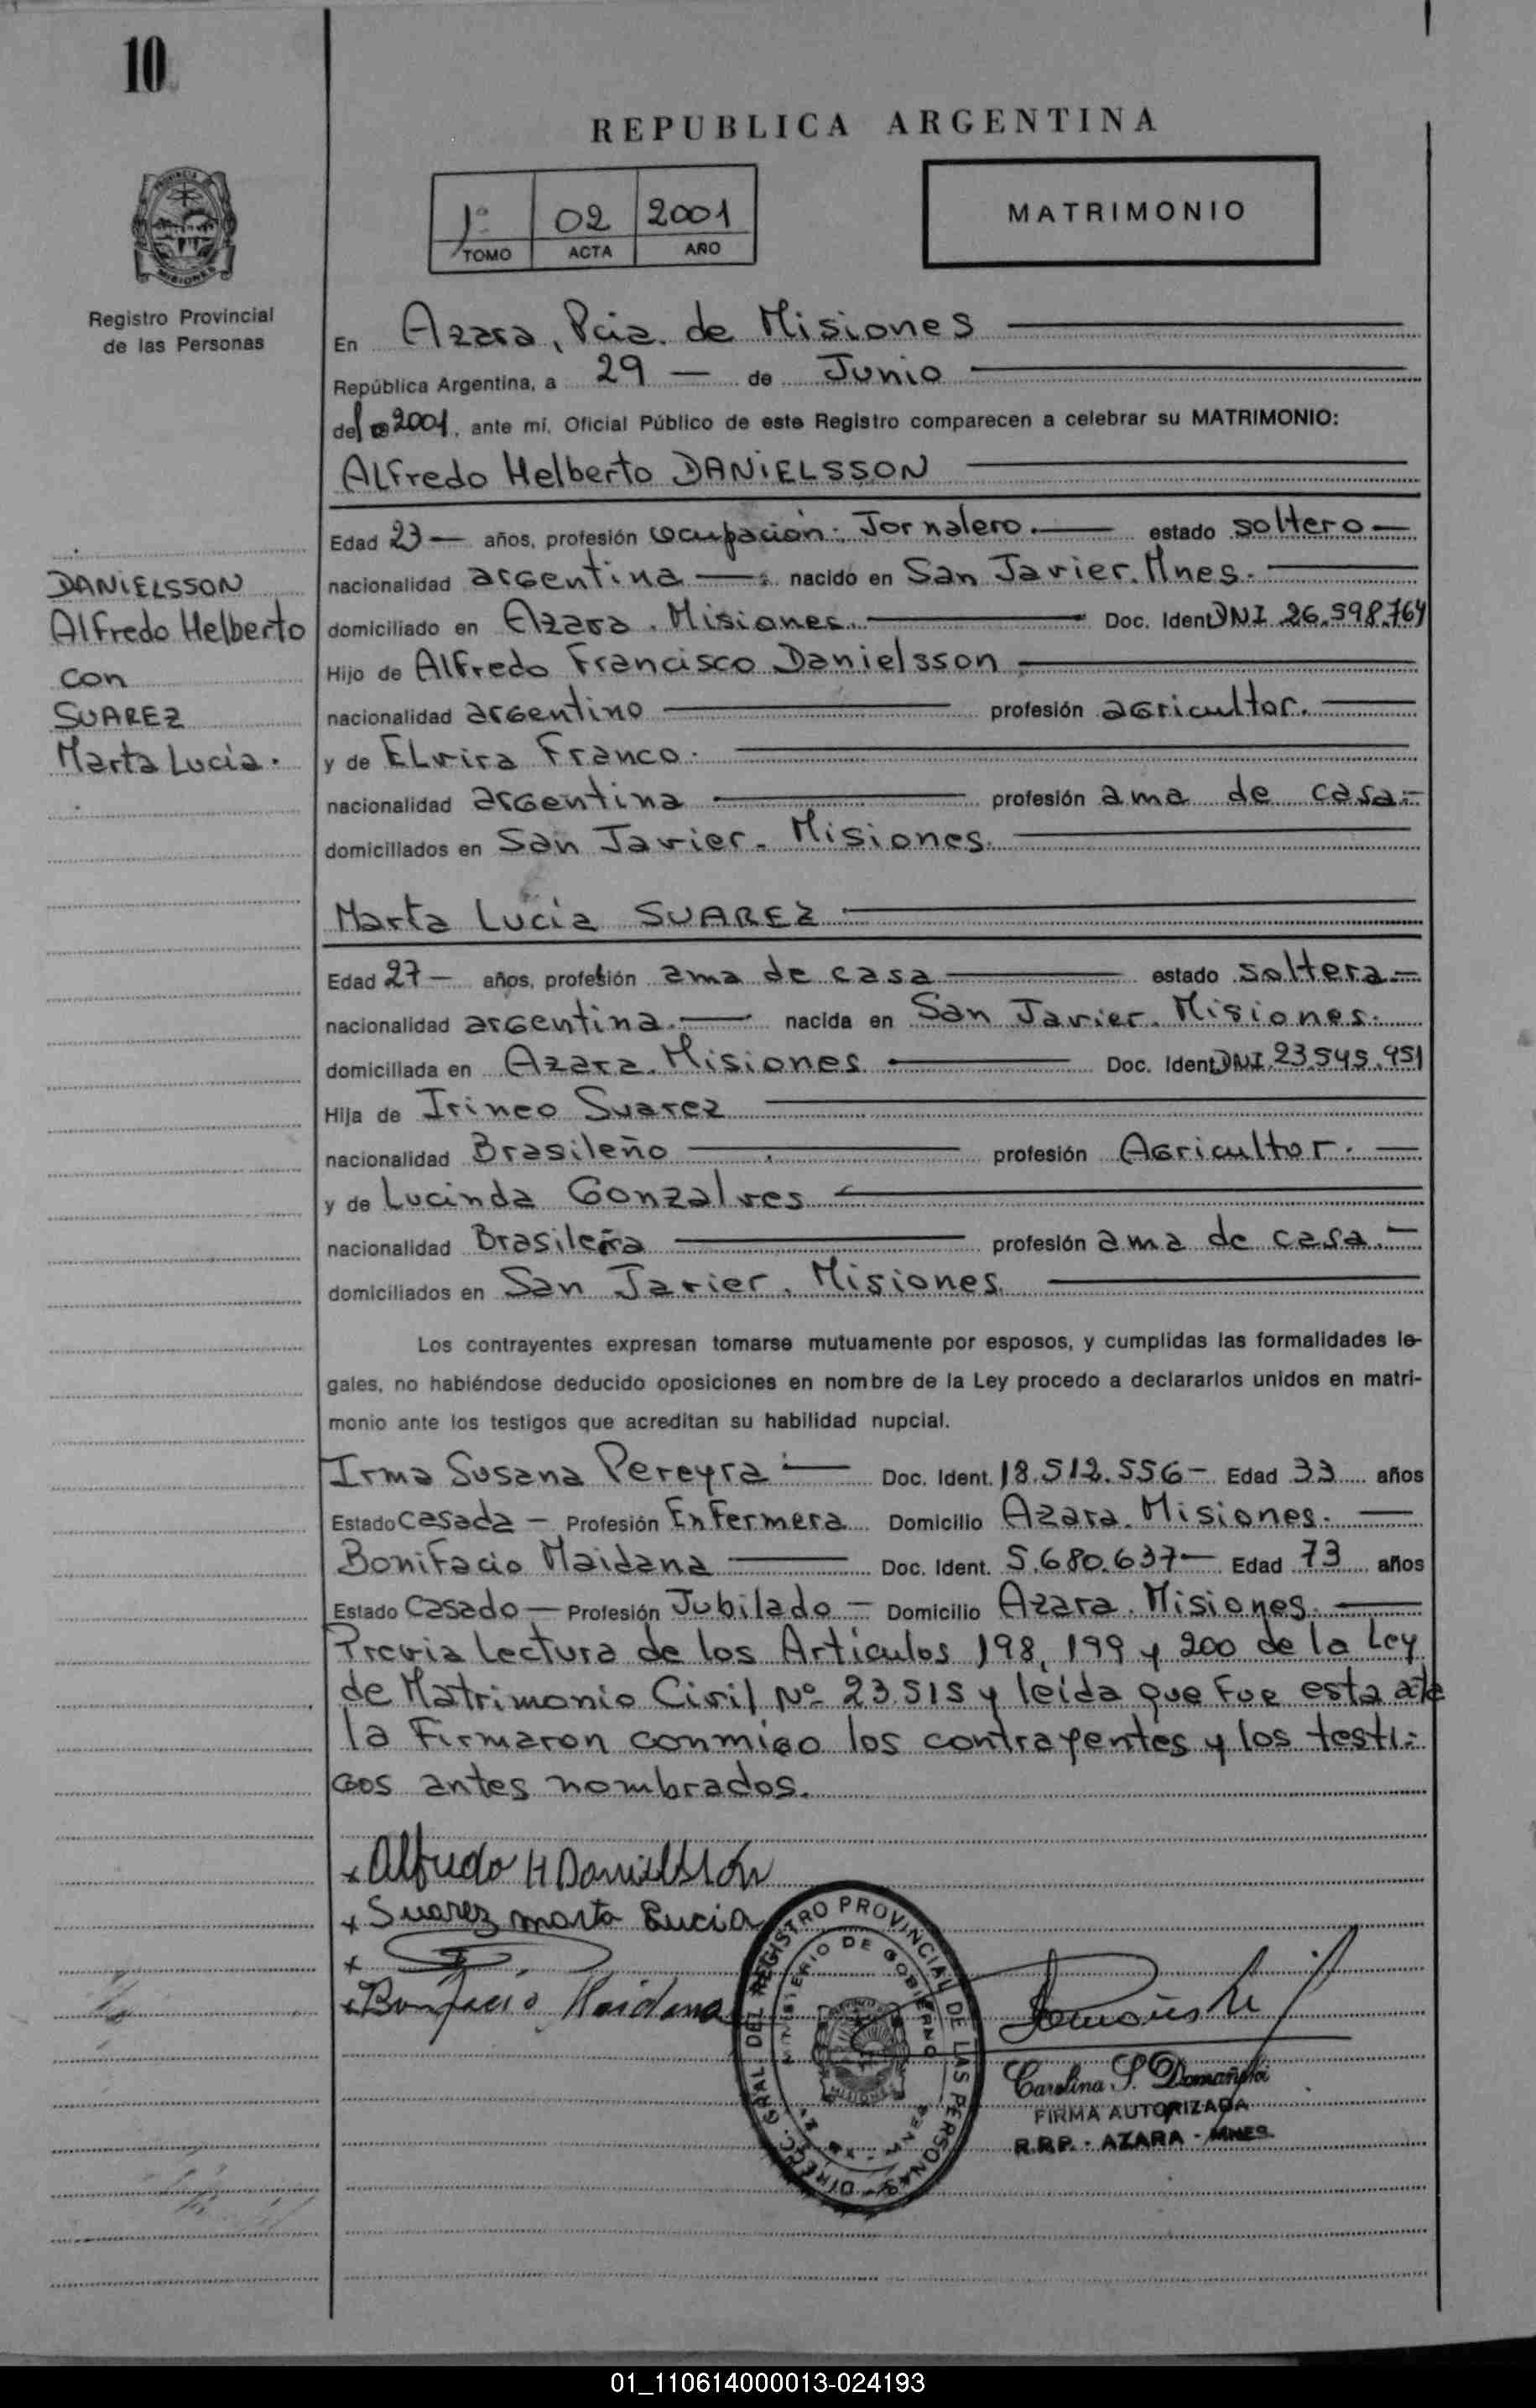 10
REPUBLICA ARGENTINA
1º 02 2001
TOMO ACTA AÑO
MATRIMONIO
PROVINCIA
MISIONES
Registro Provincial
de las Personas
En Azara, Pcia. de Misiones
República Argentina, a 29 — de Junio
del 2001, ante mí, Oficial Público de este Registro comparecen a celebrar su MATRIMONIO:
Alfredo Helberto DANIELSSON
Edad 23 — años, profesión ocupación: Jornalero. — estado soltero —
nacionalidad argentina — nacido en San Javier. Mnes. —
domiciliado en Azara. Misiones. — Doc. Ident DNI 26.598.764
Hijo de Alfredo Francisco Danielsson
nacionalidad argentino — profesión agricultor. —
y de Elvira Franco.
nacionalidad argentina — profesión ama de casa.-
domiciliados en San Javier - Misiones.
DANIELSSON
Alfredo Helberto
con
SUAREZ
Marta Lucia.
Marta Lucia SUAREZ
Edad 27 — años, profesión ama de casa — estado soltera.—
nacionalidad argentina. — nacida en San Javier. Misiones.
domiciliada en Azara. Misiones — Doc. Ident DNI. 23.545.951
Hija de Irineo Suarez
nacionalidad Brasileño — profesión Agricultor. —
y de Lucinda Gonzalves
nacionalidad Brasileña — profesión ama de casa. —
domiciliados en San Javier. Misiones.
Los contrayentes expresan tomarse mutuamente por esposos, y cumplidas las formalidades le-
gales, no habiéndose deducido oposiciones en nombre de la Ley procedo a declararlos unidos en matri-
monio ante los testigos que acreditan su habilidad nupcial.
Irma Susana Pereyra — Doc. Ident. 18.512.556 - Edad 33 años
Estado casada - Profesión Enfermera Domicilio Azara. Misiones. —
Bonifacio Maidana — Doc. Ident. 5.680.637 — Edad 73 años
Estado Casado — Profesión Jubilado — Domicilio Azara. Misiones. —
Previa Lectura de los Artículos 198, 199 y 200 de la Ley
de Matrimonio Civil Nº 23.515 y leída que fue esta
la Firmaron conmigo los contrayentes y los testi-
gos antes nombrados.
x Alfredo H Danielsson
x Suarez marta Lucia
x
x Bonifacio Maidana
DIRECC. GRAL. DEL REGISTRO PROVINCIAL DE LAS PERSONAS
MINISTERIO DE GOBIERNO
MISIONES
Carolina S.
FIRMA AUTORIZADA
R.R.P. - AZARA - MNES.
01_110614000013-024193